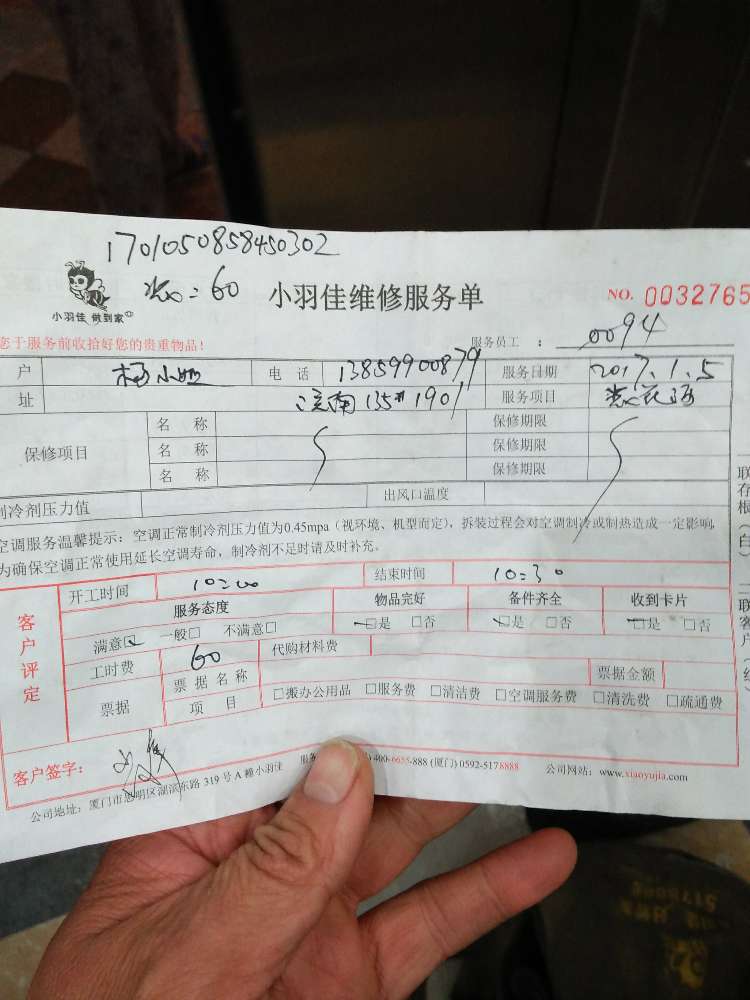 1701050858450302
=60
小羽佳 做到家
小羽佳维修服务单
NO. 0032765
您于服务前收拾好您的贵重物品!
服务员工 : 0094
户 杨小姐 电 话 13859900879 服务日期 2017.1.5
址 南135#1901 服务项目
保修项目
名 称 保修期限
名 称 保修期限
名 称 保修期限
制冷剂压力值 出风口温度
空调服务温馨提示:空调正常制冷剂压力值为0.45mpa(视环境、机型而定),拆装过程会对空调制冷或制热造成一定影响
为确保空调正常使用延长空调寿命,制冷剂不足时请及时补充。
客户评定
开工时间 10:00 结束时间 10:30
服务态度 物品完好 备件齐全 收到卡片
满意☑ 一般□ 不满意□ ☑是 □否 ☑是 □否 ☑是 □否
工时费 60 代购材料费
票据 票据名称 票据金额
项 目 □搬办公用品 □服务费 □清洁费 □空调服务费 □清洗费 □疏通费
客户签字:
400-6655-888 (厦门) 0592-5178888 公司网站: www.xiaoyujia.com
公司地址: 厦门市思明区湖滨东路 319 号 A 幢小羽佳
联
存
根
(
白
)
联
客
户